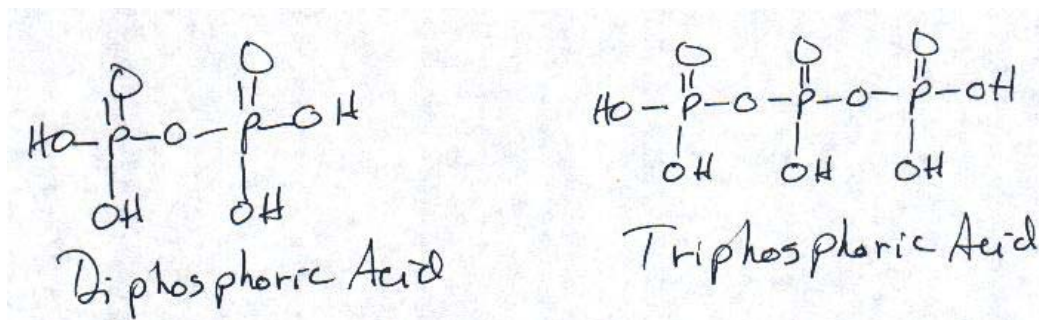 O O
HO-P-O-P-OH
OH OH
Diphosphoric Acid
O O O
HO-P-O-P-O-P-OH
OH OH OH
Triphosphoric Acid